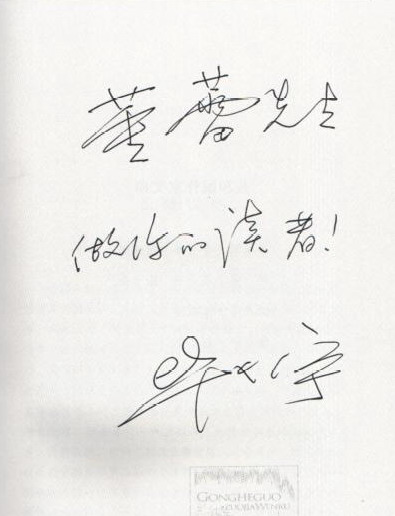 董蕾先生
做你的读者!
GONGHEGUO
ZUOJIAWENKU